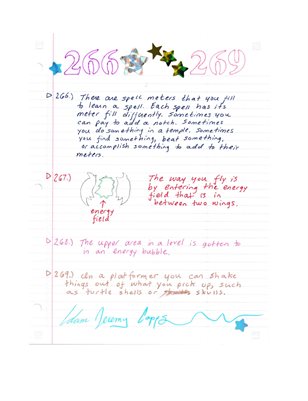 266 269
266.) There are spell meters that you fill
to learn a spell. Each spell has its
meter fill differently. Sometimes you
can pay to add a notch. Sometimes
you do something in a temple, sometimes
you find something, beat something,
or accomplish something to add to their
meters.
267.) The way you fly is
by entering the energy
field that is in
between two wings.
energy
field
268.) The upper area in a level is gotten to
in an energy bubble.
269.) In a platformer you can shake
things out of what you pick up, such
as turtle shells or skulls.
Adam Jeremy